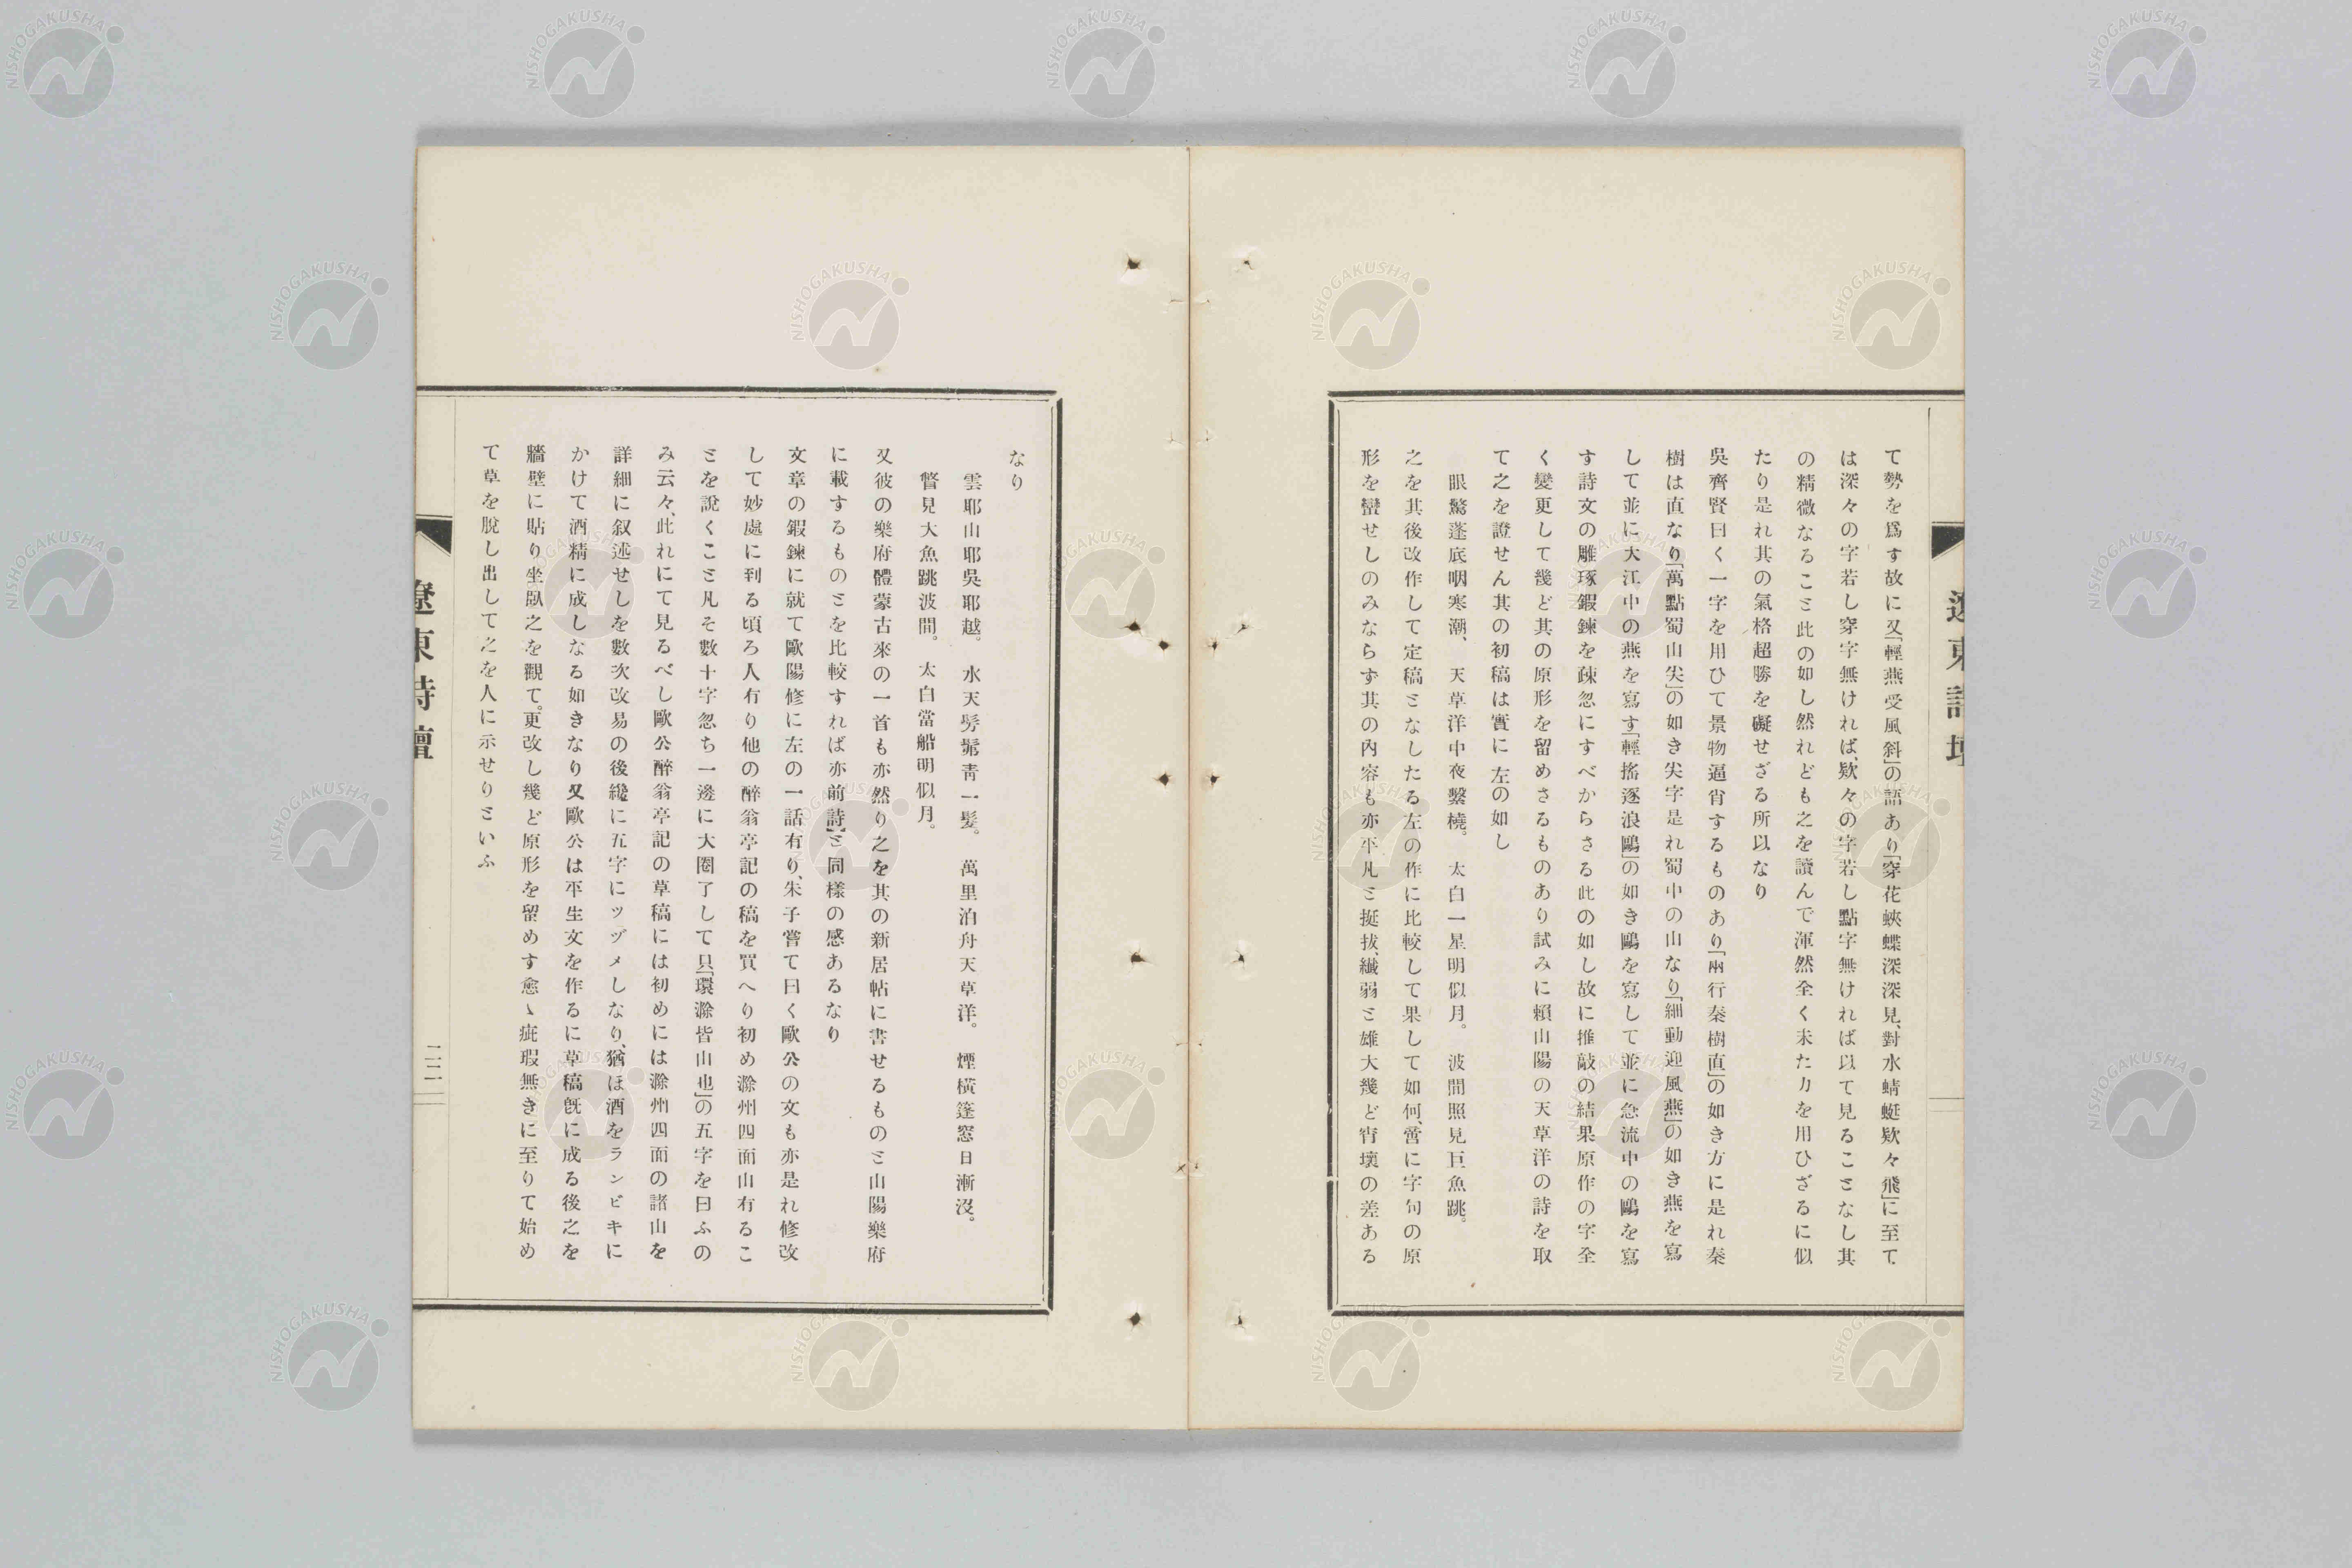 遼東詩壇
て勢を爲す故に又「輕燕受風斜」の語あり「穿花蛺蝶深深見、對水蜻蜓欵々飛」に至て
は深々の字若し穿字無ければ、欵々の字若し點字無ければ以て見るこ𪜈なし其
の精微なるこヿ此の如し然れども之を讀んで渾然全く未た力を用ひざるに似
たり是れ其の氣格超勝を礙せざる所以なり
吳齊賢曰く一字を用ひて景物逼肖するものあり「兩行秦樹直」の如き方に是れ秦
樹は直なり「萬點蜀山尖」の如き尖字是れ蜀中の山なり「細動迎風燕」の如き燕を寫
して並に大江中の燕を寫す「輕搖逐浪鷗」の如き鷗を寫して並に急流中の鷗を寫
す詩文の雕琢鍜鍊を疎忽にすべからさる此の如し故に推敲の結果原作の字全
く變更して幾ど其の原形を留めさるものあり試みに賴山陽の天草洋の詩を取
て之を證せん其の初稿は實に左の如し
眼驚蓬底咽寒潮、　天草洋中夜繫橈。　太白一星明似月。　波間照見巨魚跳。
之を其後改作して定稿ミなしたる左の作に比較して果して如何、啻に字句の原
形を巒せしのみならず其の內容も亦平凡ミ挺拔、纎弱ミ雄大幾ど宵壤の差ある
なり
雲耶山耶吳耶越。　水天髣髴靑一髮。　萬里泊舟天草洋。　煙橫篷窓日漸沒。
瞥見大魚跳波間。　太白當船明似月。
又彼の樂府體蒙古來の一首も亦然り之を其の新居帖に書せるものミ山陽樂府
に載するものミを比較すれば亦前詩ミ同樣の感あるなり
文章の鍜鍊に就て歐陽修に左の一話有り、朱子嘗て曰く歐公の文も亦是れ修改
して妙處に到る頃ろ人有り他の醉翁亭記の稿を買へり初め滁州四面山有るこ
ミを說くこミ凡そ數十字忽ち一邊に大圈了して只「環滁皆山也」の五字を曰ふの
み云々、此れにて見るべし歐公醉翁亭記の草稿には初めには滁州四面の諸山を
詳細に叙述せしを數次改易の後纔に五字にツヅメしなり、猶ほ酒をランビキに
かけて酒精に成しなる如きなり又歐公は平生文を作るに草稿既に成る後之を
牆壁に貼り坐臥之を觀て。更改し幾ど原形を留めす愈〻疵瑕無きに至りて始め
て草を脫し出して之を人に示せりミいふ
遼東詩壇
二二
NISHOGAKUSHA